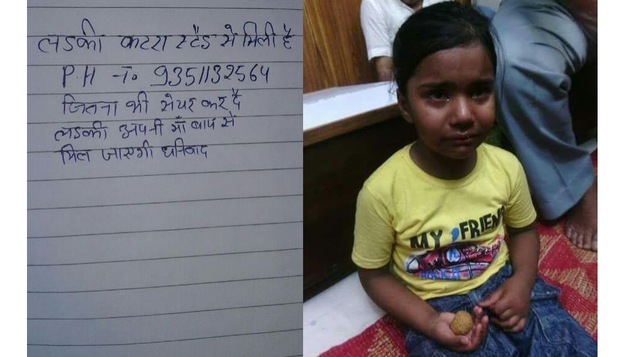 लडकी कटरा स्टैंड से मिली है
P.H न० 9351132564
जितना की सेयर कर दे
लडकी अपनी माँ बाप से
मिल जाएगी धनिवाद
MY FRIEND